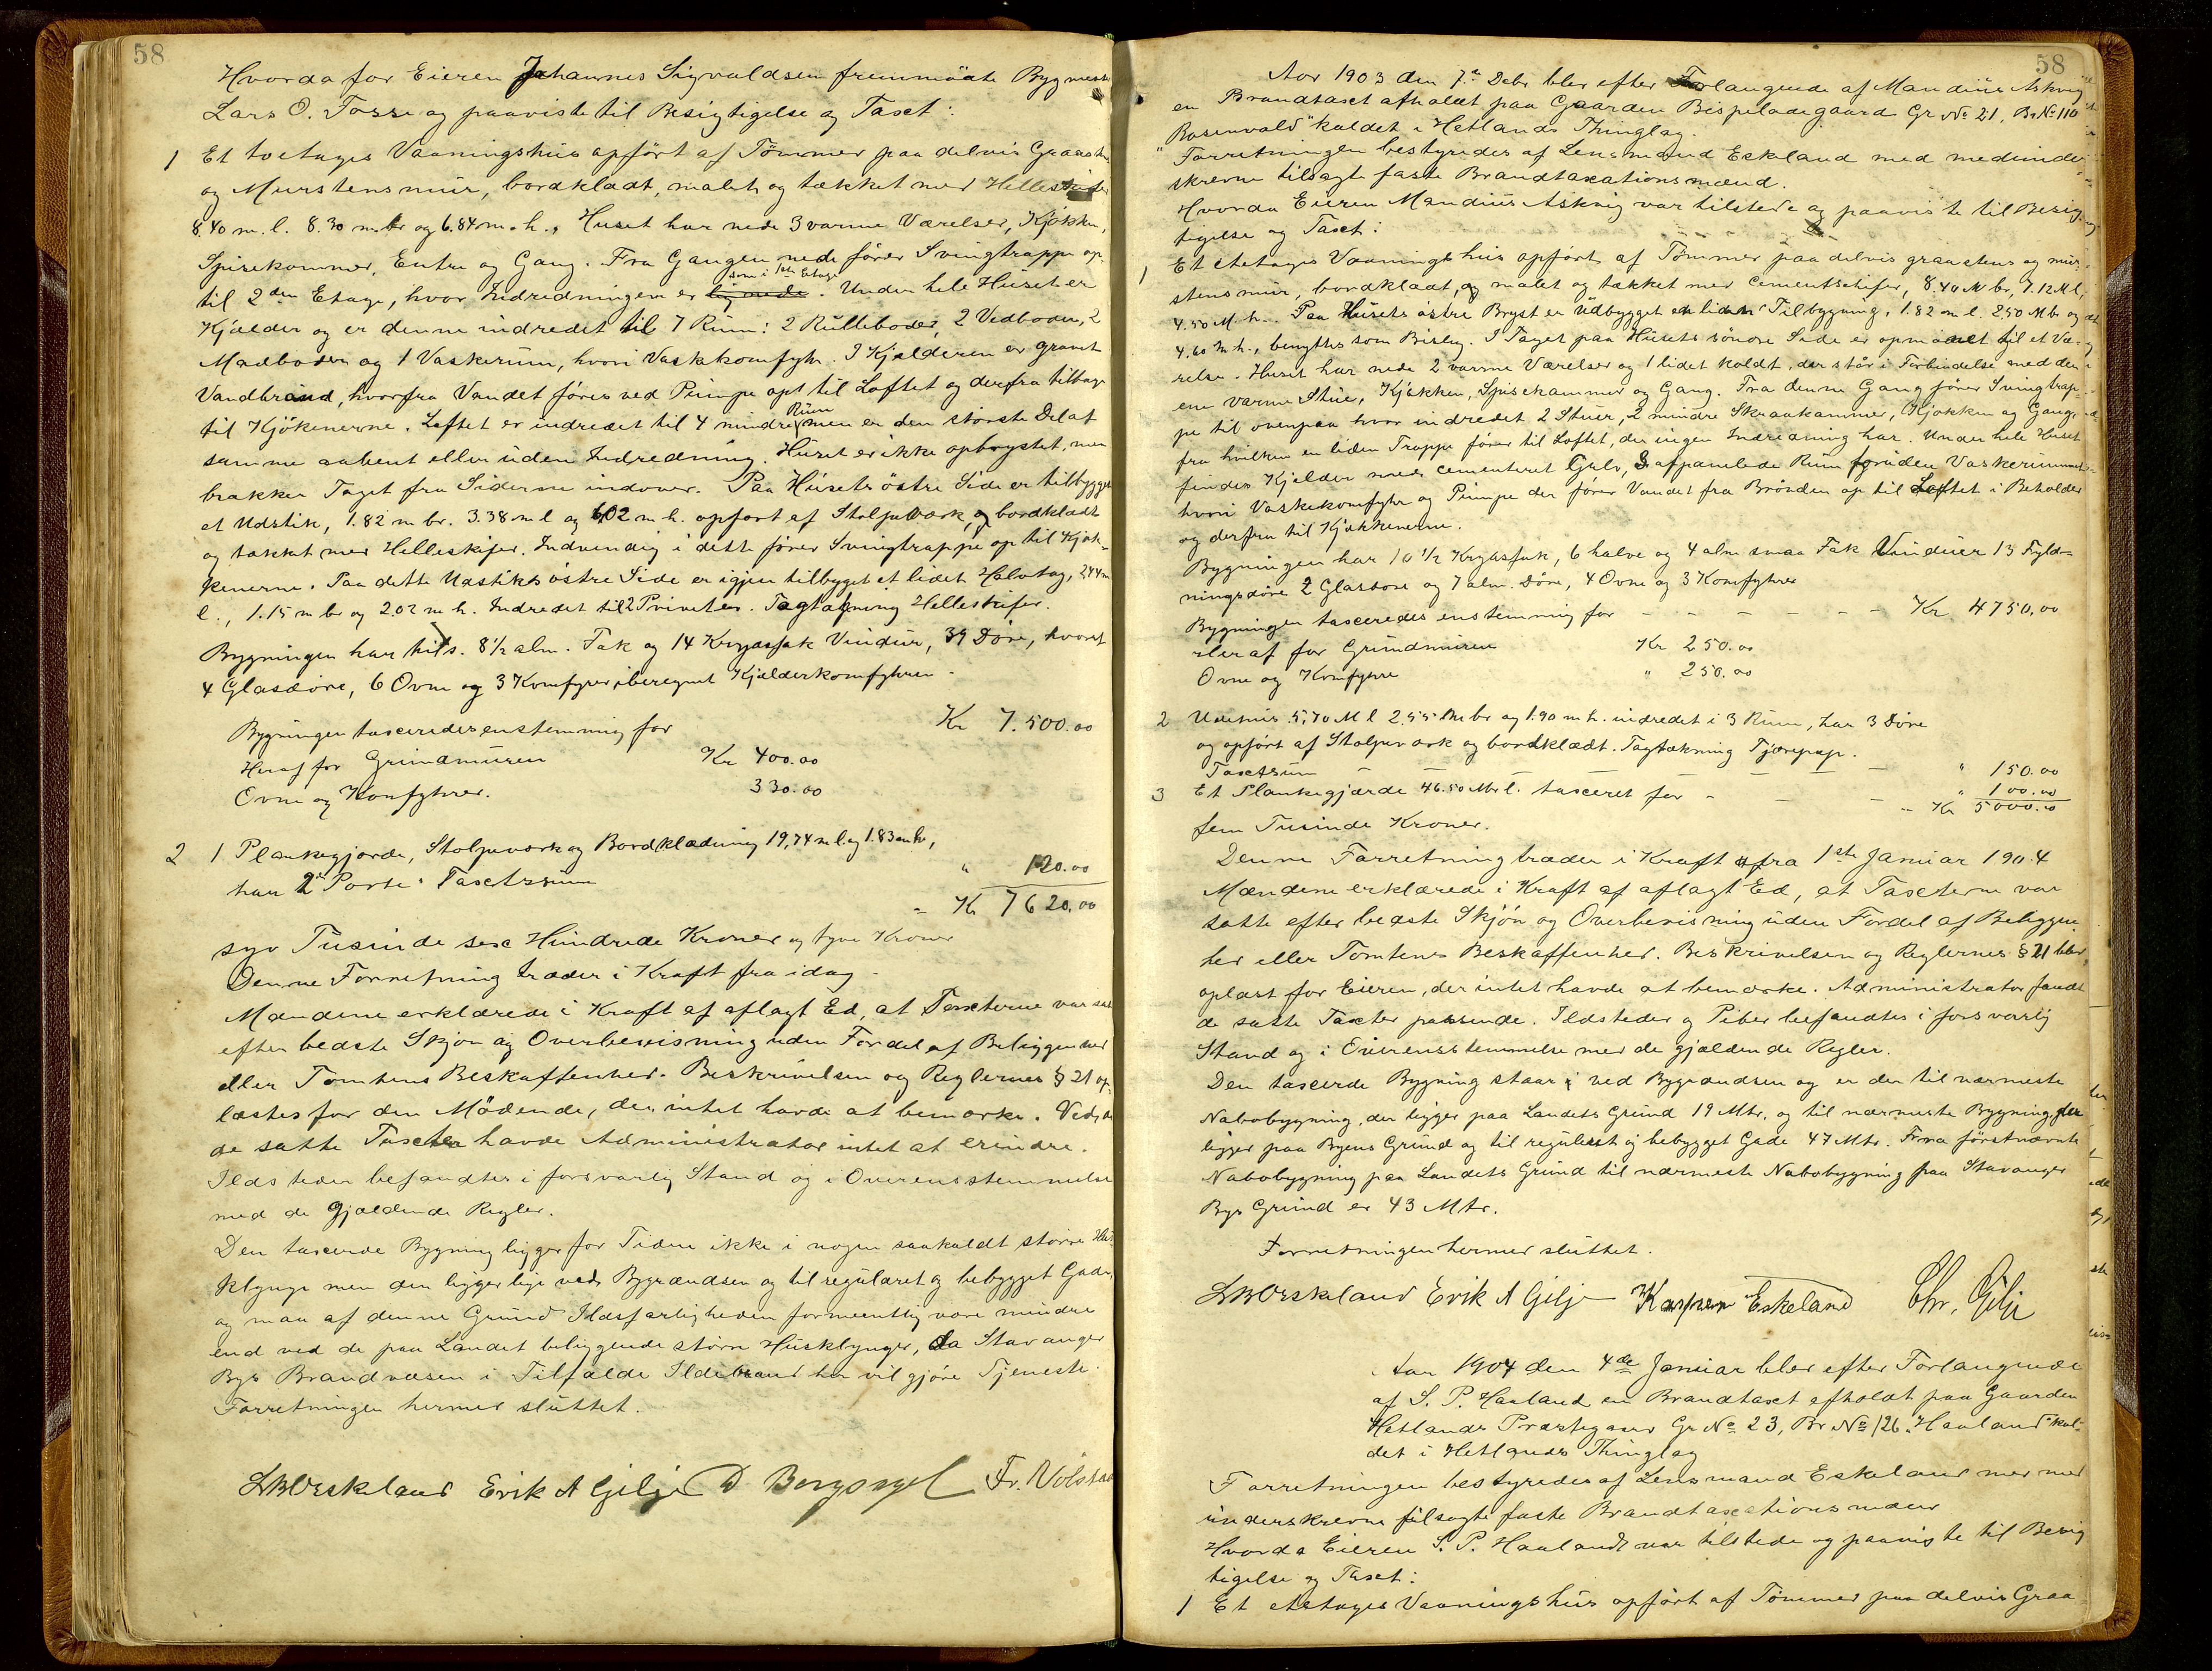 58
Hvorda for Eieren Johannes Sigvaldsen fremmödte Bygmest
Lars O. Tosse og paaviste til Besigtigelse og Taxt:
1 Et toetages Vaaningshus opfört af Tömmer paa delvis Graasten
og Murstensmur, bordklædt, malet og tækket med Helleskifer
8.40 m. l. 8.30 m. br og 6.84 m. h., Huset har nede 3 varme Værelser, Kjökken,
Spisekammer, Entre og Gang. Fra Gangen nede förer Svingtrappe op
til 2den Etage, hvor Indredningen er som i 1ste Etage. Under hele Huset er
Kjælder og er denne indredet til 7 Rum: 2 Rulleboder, 2 Vedboder, 2
Madboder og 1 Vaskerum, hvori Vaskekomfyhr. I Kjælderen er gravet
Vandbrønd, hvorfra Vandet föres ved Pumpe opt til Loftet og derfra tilbage
til Kjökenerne. Loftet er indredet til 4 mindre Rum men er den störste Del af
samme aabent eller uden Indredning. Huset er ikke opbrystet, men
brækker Taget fra Siderne indover. Paa Husets östre Side er tilbygget
et Udstik, 1.82 m br. 3.38 m l og 6,02 m h. opfört af Stolpeværk, og bordklædt
og tækket med Helleskifer. Indvendig i dette förer Svingtrappe op til Kjök-
kenerne. Paa dette Udstiks östre Side er igjen tilbyget et lidet Halvtag, 2,44 m
l., 1.15 m br og 2.02 m h. Indredet til 2 Priveter. Tagtækning Helleskifer.
Bygningen har tils. 8½ alm. Fak og 14 Krydsfak Vinduer, 39 Döre, hvoraf
4 Glasdöre, 6 Ovne og 3 Komfyrer iberegnet Kjælderkomfyhren.
Bygningen taxeredes enstemmig for Kr 7.500.00
Heraf for Grundmuren Kr 400.00
Ovne og Komfyhrer. 330.00
2 1 Plankegjærde, Stolpeværk og Bordklædning 19,74 m l og 1.83 m h,
har 2 Porte. Taxtsum " 120.00
Kr 7620.00
syv Tusinde sex Hundrede Kroner og tyve Kroner
Denne Forretning træder i Kraft fra idag.
Mændene erklærede i Kraft af aflagt Ed, at Taxterne var sat
efter bedste Skjön og Overbevisning uden Fordel af Beliggenhed
eller Tomtens Beskaffenhed. Beskrivelsen og Reglernes § 21 op-
læstes for den Mödende, der intet havde at bemærke. Ved
de satte Taxter havde Administrator intet at erindre.
Ildsteder befandtes i forsvarlig Stand og i Overensstemmelse
med de gjældende Regler.
Den taxerede Bygning ligger for Tiden ikke i nogen saakaldt större Hus
klynge men den ligger lige ved Bygrændsen og til reguleret og bebygget Gade,
og maa af denne Grund Ildsfarligheden formentlig være mindre
end ved de paa Landet beliggende större Husklynger, da Stavanger
Bys Brandvæsen i Tilfælde Ildebrand her vil gjöre Tjeneste.
Forretningen hermed sluttet.
LBOrskeland Erik A Gilje D Bergsagel Fr. Volstad
58
Aar 1903 den 7de Debr blev efter Forlangende af Mandius Askvig
en Brandtaxt afholdt paa Gaarden Bispeladegaard Gr No 21, Br No 110
"Rosenvold" kaldet i Hetlands Thinglag.
Forretningen bestyredes af Lensmand Eskeland med medunder-
skrevne tilsagte faste Brandtaxationsmænd.
Hvorda Eieren Mandius Askvig var tilstede og paaviste til Besig-
tigelse og Taxt:
1 Et etetages Vaaningshus opfört af Tömmer paa delvis graastens og mur-
stensmur, bordklædt, og malet og tækket med Cementskifer, 8.40 M br, 7.12 M l,
4.50 M. h. Paa Husets östre Bryst er udbygget en liden Tilbygning, 1.82 m l. 2.50 M br og
4.60 m h., benyttes som Bislag. I Taget paa Husets söndre Side er opmaalet til et Væ-
relse. Huset har nede 2 varme Værelser og 1 lidet koldt, der står i Forbindelse med den
ene varme Stue, Kjökken, Spisekammer og Gang. Fra denne Gang förer Svingtrap-
pe til ovenpaa hvor indredet 2 Stuer, 2 mindre Skraakammer, Kjökken og Gang,
fra hvilken en liden Trappe förer til Loftet, der ingen Indredning har. Under hele Huset
findes Kjelder med Cementeret Gulv, 3 afpanelede Rum foruden Vaskerummet
hvori Vaskekomfyhr og Pumpe der förer Vandet fra Brönden op til Loftet i Beholder
og derfra til Kjökkenerne.
Bygningen har 10½ Krydsfak, 6 halve og 4 alm smaa Fak Vinduer 13 Fyld-
ningsdöre 2 Glasdöre og 7 alm. Döre, 4 Ovne og 3 Komfyhrer
Bygningen taxeredes enstemmig for Kr 4750,00
deraf for Grundmuren Kr 250.00
Ovne og Komfyhre " 250.00
2 Udehus 5,70 M l 2.55 M br og 1.90 m h. indredet i 3 Rum, har 3 Döre
og opfört af Stolpeværk og bordklædt. Tagtækning Tjærepap.
Taxtsum " 150.00
3 Et Plankegjærde 46.50 Mtr l. taxeret for " 100.00
Kr 5000.00
fem Tusinde Kroner.
Denne Forretning træder i Kraft fra 1ste Januar 1904
Mændene erklærede i Kraft af aflagt Ed, at Taxterne var
satte efter bedste Skjön og Overbevisning uden Fordel af Beliggen-
hed eller Tomtens Beskaffenhed. Beskrivelsen og Reglernes § 21 blev
oplæst for Eieren, der intet havde at bemærke. Administrator fandt
de satte Taxter passende. Ildsteder og Piber befandtes i forsvarlig
Stand og i Overensstemmelse med de gjældende Regler.
Den taxerede Bygning staar ved Bygrændsen og er den til nærmeste
Nabobygning, der ligger paa Landets Grund 19 Mtr, og til nærmeste Bygning, der
ligger paa Byens Grund og til reguleret og bebygget Gade 47 Mtr. Fra förstnævnte
Nabobygning paa Landets Grund til nærmeste Nabobygning paa Stavanger
Bys Grund er 43 Mtr.
Forretningen hermed sluttet.
LBOrskeland Erik A Gilje Kasper Eskeland Chr. Gilje
Aar 1904 den 4de Januar blev efter Forlangende
af S. P. Haaland en Brandtaxt afholdt paa Gaarden
Hetlands Præstegaard Gr No 23, Br No 126 "Haaland" kal-
det i Hetlands Thinglag
Forretningen bestyredes af Lensmand Eskeland med med
underskrevne tilsagte faste Brandtaxationsmænd
Hvorda Eieren S. P. Haaland var tilstede og paaviste til Besig
tigelse og Taxt:
1 Et etetages Vaaningshus opfört af Tömmer paa delvis Graa